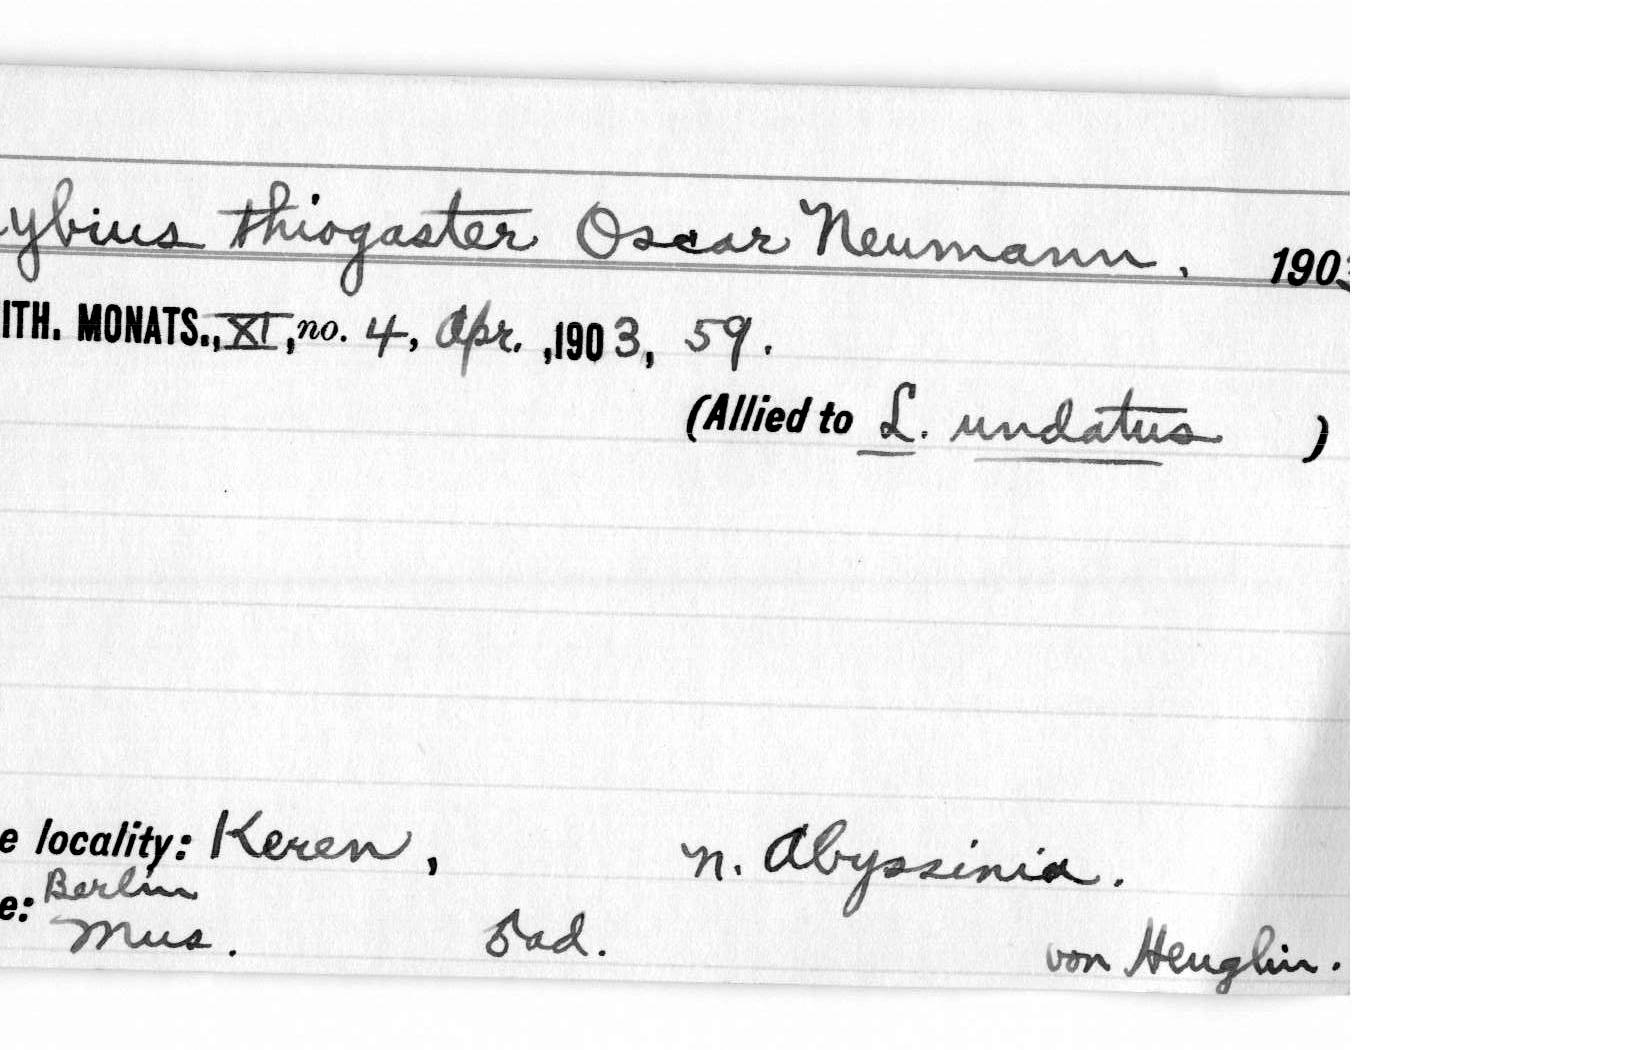 ybius thiogaster Oscar Neumann. 1903
ITH. MONATS., XI, no. 4, Apr., 1903, 59.
(Allied to L. undatus )
e locality: Keren, n. Abyssinia.
e: Berlin
Mus. ad. von Heuglin.